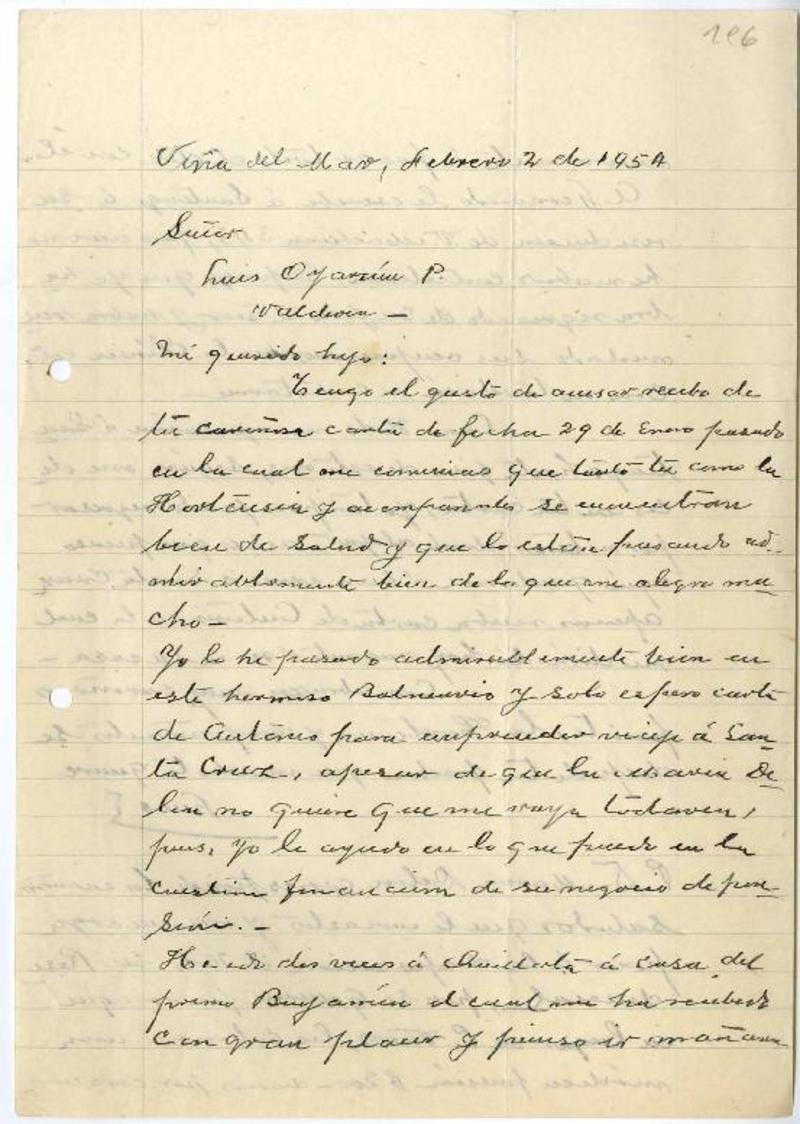 196
Viña del Mar, Febrero 2 de 1954
Señor
Luis Oyarzún P.
Valdivia —
Mi querido hijo:
Tengo el gusto de acusar recibo de
tu cariñosa carta de fecha 29 de Enero pasado
en la cual me comunicas que tanto tu como la
Hortensia y acompañantes se encuentran
bien de salud y que lo están pasando ad-
mirablemente bien de lo que me alegra mu-
cho —
Yo lo he pasado admirablemente bien en
este hermoso Balneario y solo espero carta
de Antonio para emprender viaje á San-
ta Cruz, apesar de que la Maria De-
lia no quiere que me vaya todavia,
pues, yo le ayudo en lo que puedo en la
cuestion financiera de su negocio de pen-
sión. —
He ido dos veces á Quillota á casa del
primo Benjamín el cual me ha recibido
con gran placer y pienso ir mañana